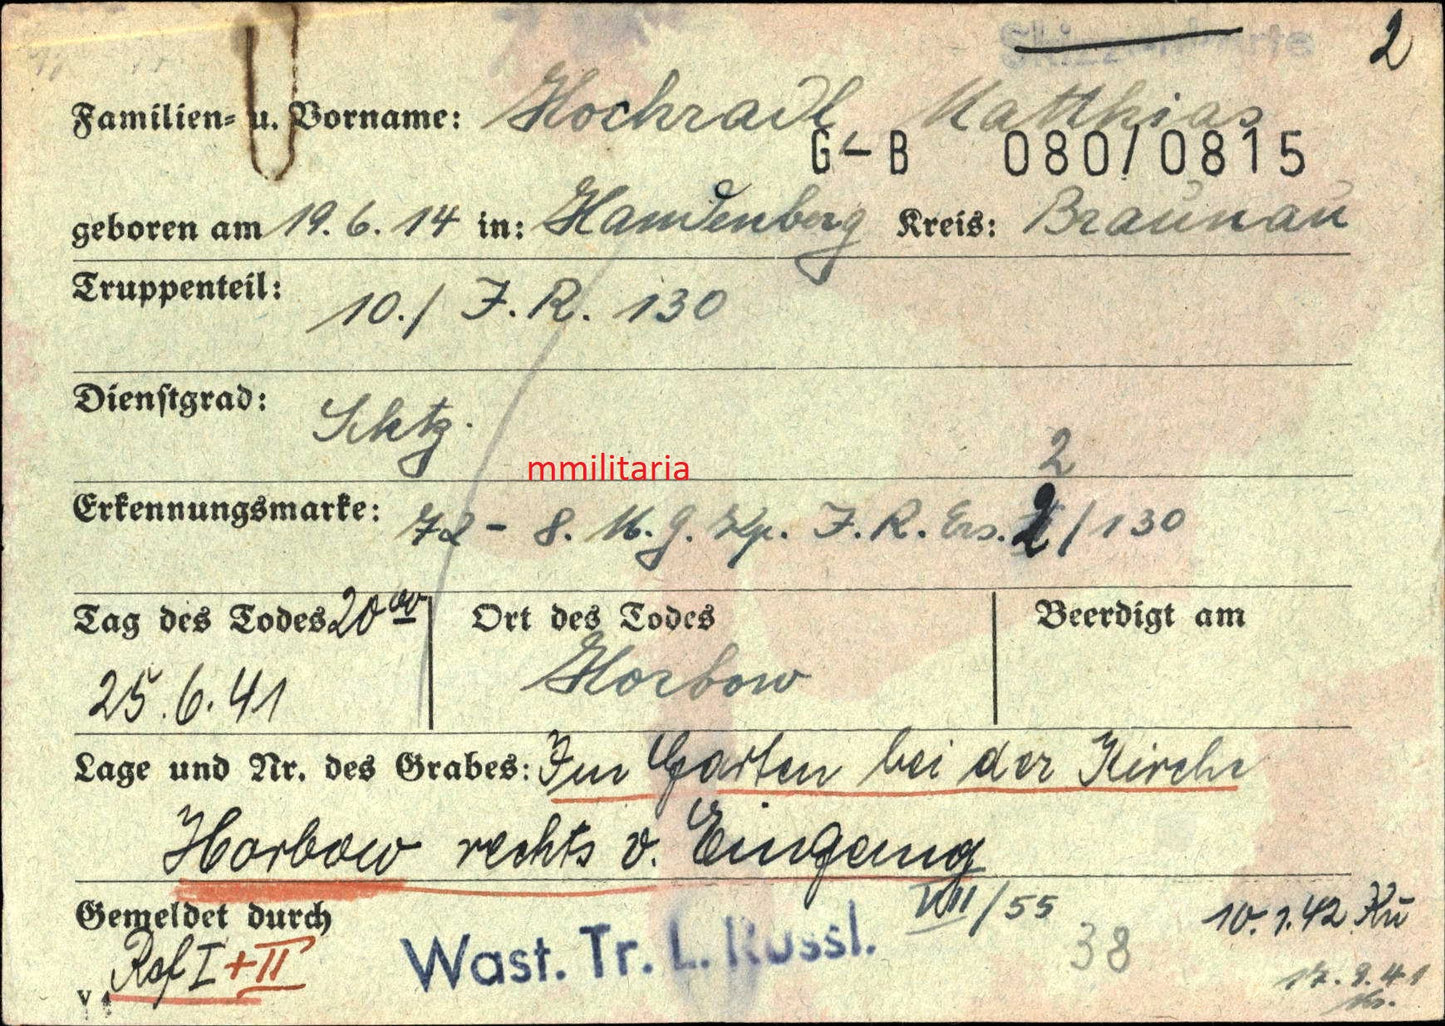 2
Familien= u. Vorname: Hochradl Matthias
G-B 080/0815
geboren am 19.6.14 in: Handenberg Kreis: Braunau
Truppenteil: 10./ J.R. 130
Dienstgrad: Schtz.
mmilitaria
2
Erkennungsmarke: 72 - 8. M.G. Kp. J.R. Ers. 2/130
Tag des Todes 20⁰⁰ Ort des Todes Beerdigt am
25.6.41 Horbow
Lage und Nr. des Grabes: Im Garten bei der Kirche
Horbow rechts v. Eingang
Gemeldet durch VIII/55 10.1.42 Kü
Ref I + II Wast. Tr. L. Russl. 38
17.9.41